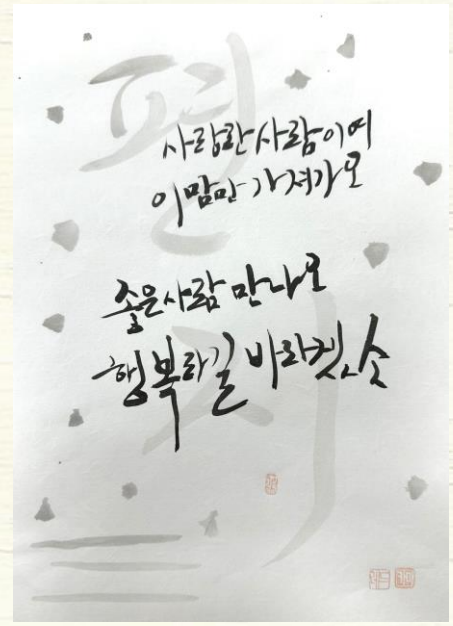 편지
사랑한 사람이여
이 맘만 가져가오
좋은 사람 만나오
행복하길 바라겠소